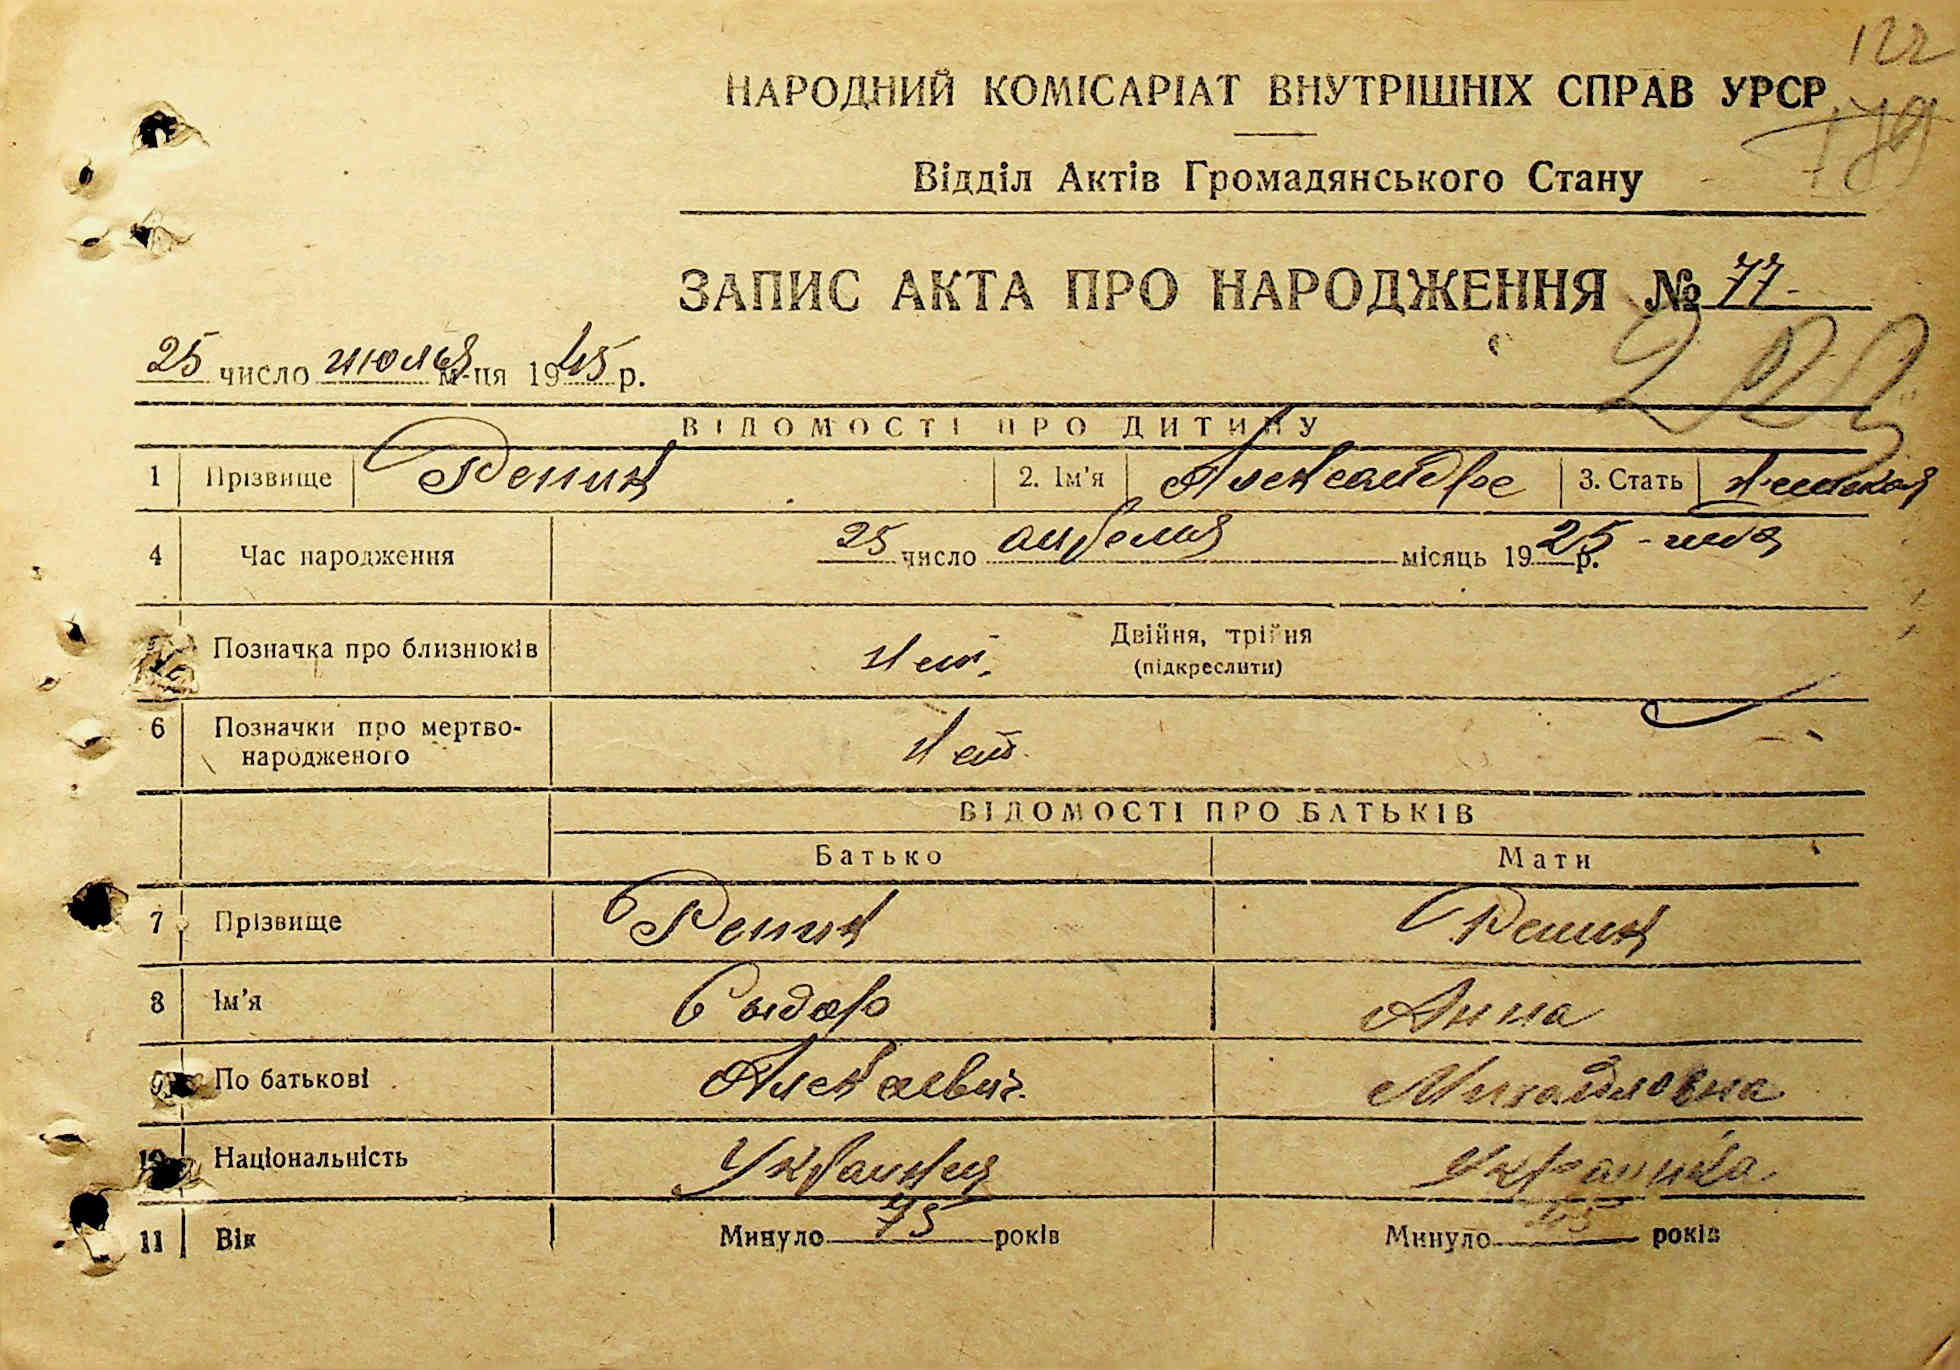 122
179
НАРОДНИЙ КОМІСАРІАТ ВНУТРІШНІХ СПРАВ УРСР
Відділ Актів Громадянського Стану
ЗАПИС АКТА ПРО НАРОДЖЕННЯ № 77
25 число июля м-ця 1945 р.
ВІДОМОСТІ ПРО ДИТИНУ
1 Прізвище Репик 2. Ім'я 3. Стать женская
4 Час народження 25 число апреля місяць 1925 р.
5 Позначка про близнюків нет. Двійня, трійня
(підкреслити)
6 Позначки про мертво-
народженого нет.
ВІДОМОСТІ ПРО БАТЬКІВ
Батько Мати
7 Прізвище Репик Репик
8 Ім'я Сыдор Анна
9 По батькові Алексеевич Михайловна
10 Національність Украинец Украинка
11 Вік Минуло 75 років Минуло років